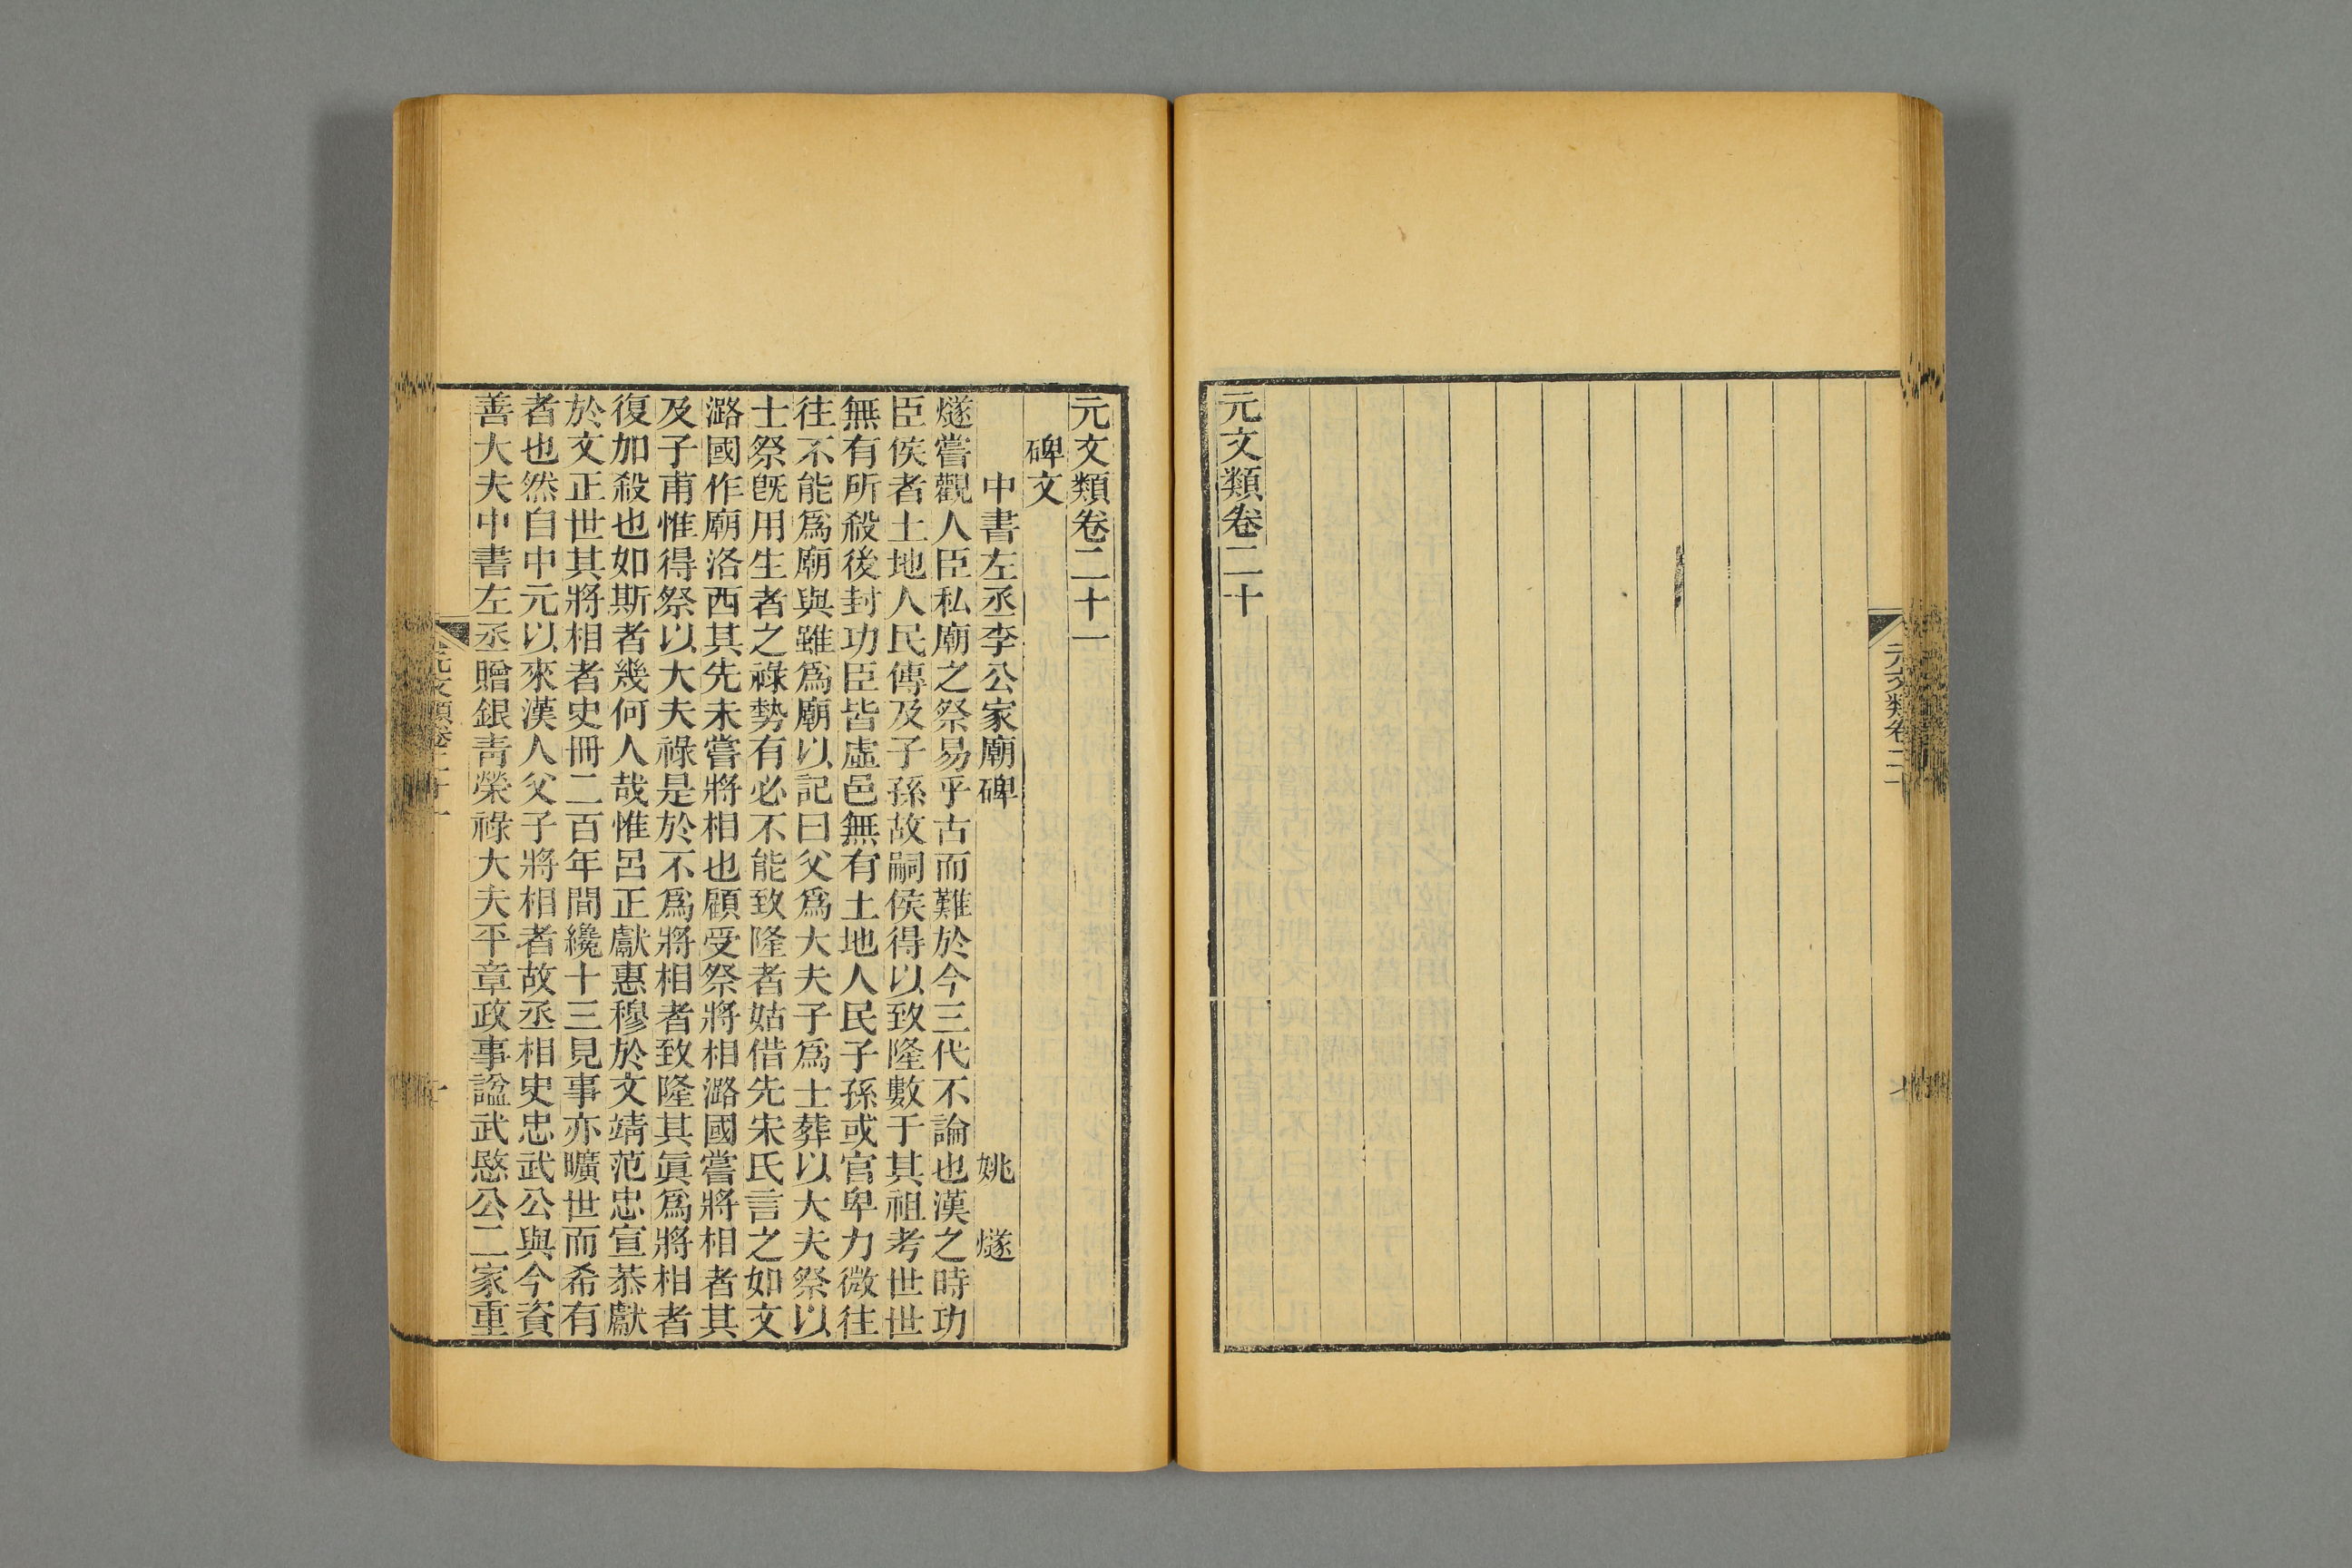 元文類卷二十
元文類卷二十一
碑文
中書左丞李公家廟碑 姚燧
燧嘗觀人臣私廟之祭易乎古而難於今三代不論也漢之時功
臣侯者土地人民傳及子孫故嗣侯得以致隆數于其祖考世世
無有所殺後封功臣皆虛邑無有土地人民子孫或官卑力微往
往不能爲廟與雖爲廟以記曰父爲大夫子爲士葬以大夫祭以
士祭旣用生者之祿勢有必不能致隆者姑借先宋氏言之如文
潞國作廟洛西其先未嘗將相也顧受祭將相潞國嘗將相者其
及子甫惟得祭以大夫祿是於不爲將相者致隆其眞爲將相者
復加殺也如斯者幾何人哉惟呂正獻惠穆於文靖范忠宣恭獻
於文正世其將相者史冊二百年間纔十三見事亦曠世而希有
者也然自中元以來漢人父子將相者故丞相史忠武公與今資
善大夫中書左丞贈銀靑榮祿大夫平章政事諡武愍公二家重